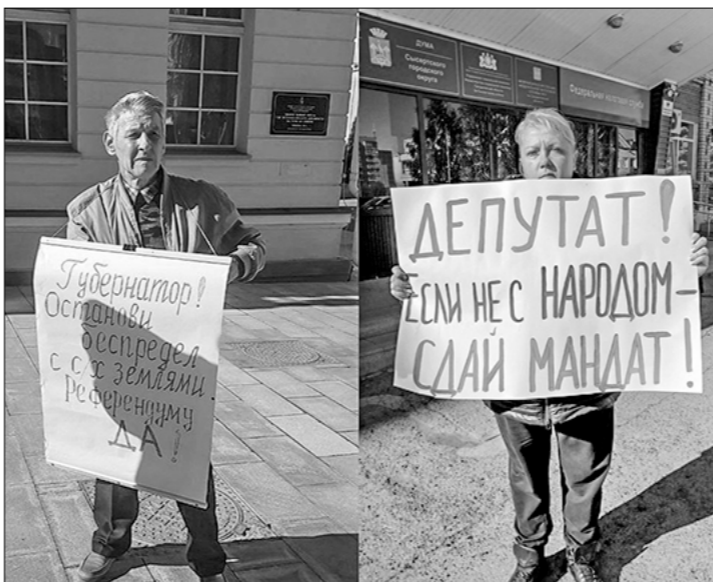 Губернатор!
Останови
беспредел
с с/х землями.
Референдуму
ДА!
ДУМА
Сысертского
городского
округа
Федеральная налоговая служба
ДЕПУТАТ!
ЕСЛИ НЕ С НАРОДОМ–
СДАЙ МАНДАТ!